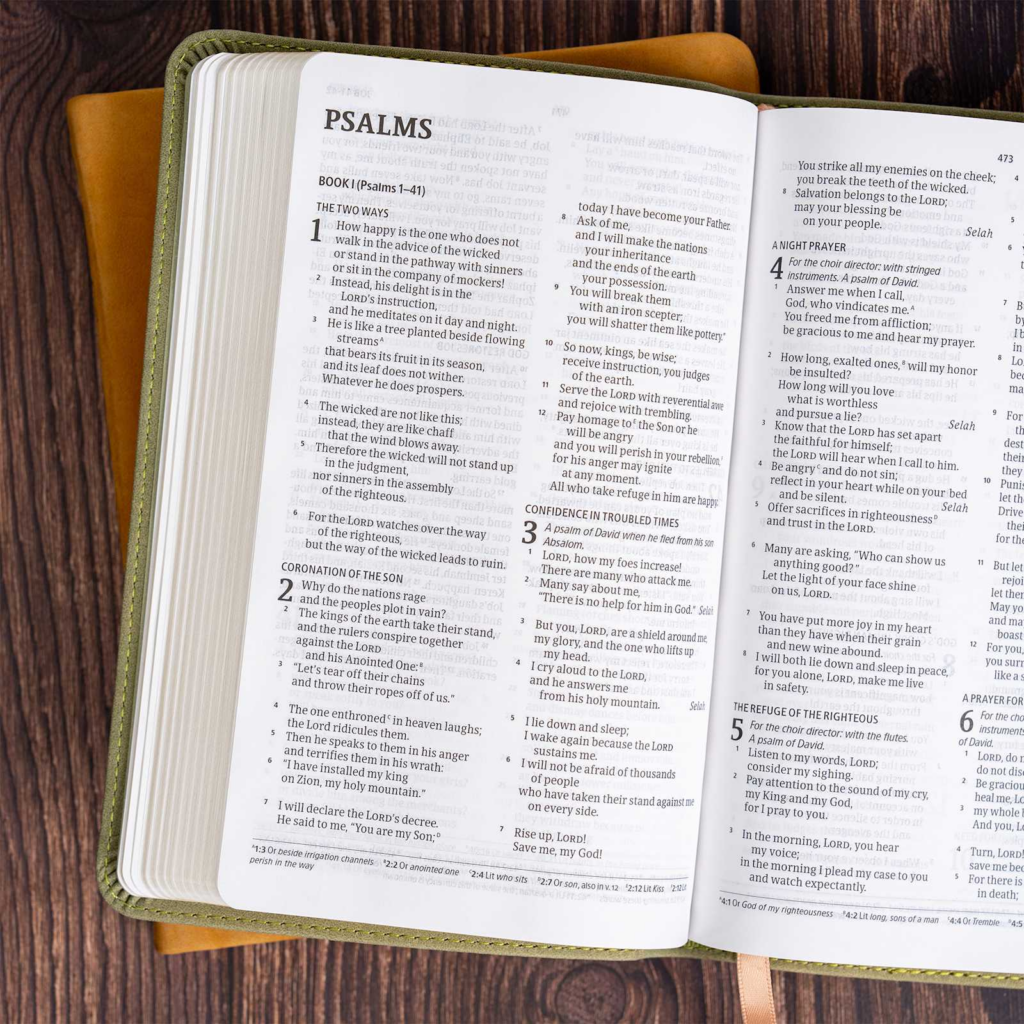 PSALMS
BOOK I (Psalms 1–41)
THE TWO WAYS
1 How happy is the one who does not
walk in the advice of the wicked
or stand in the pathway with sinners
or sit in the company of mockers!
2 Instead, his delight is in the
LORD's instruction,
and he meditates on it day and night.
3 He is like a tree planted beside flowing
streams^A
that bears its fruit in its season,
and its leaf does not wither.
Whatever he does prospers.
4 The wicked are not like this;
instead, they are like chaff
that the wind blows away.
5 Therefore the wicked will not stand up
in the judgment,
nor sinners in the assembly
of the righteous.
6 For the LORD watches over the way
of the righteous,
but the way of the wicked leads to ruin.
CORONATION OF THE SON
2 Why do the nations rage
and the peoples plot in vain?
2 The kings of the earth take their stand,
and the rulers conspire together
against the LORD
and his Anointed One:^B
3 "Let's tear off their chains
and throw their ropes off of us."
4 The one enthroned^C in heaven laughs;
the Lord ridicules them.
5 Then he speaks to them in his anger
and terrifies them in his wrath:
6 "I have installed my king
on Zion, my holy mountain."
7 I will declare the LORD's decree.
He said to me, "You are my Son;^D
today I have become your Father.
8 Ask of me,
and I will make the nations
your inheritance
and the ends of the earth
your possession.
9 You will break them
with an iron scepter;
you will shatter them like pottery."
10 So now, kings, be wise;
receive instruction, you judges
of the earth.
11 Serve the LORD with reverential awe
and rejoice with trembling.
12 Pay homage to^E the Son or he
will be angry
and you will perish in your rebellion,^F
for his anger may ignite
at any moment.
All who take refuge in him are happy.
CONFIDENCE IN TROUBLED TIMES
3 A psalm of David when he fled from his son
Absalom.
1 LORD, how my foes increase!
There are many who attack me.
2 Many say about me,
"There is no help for him in God." Selah
3 But you, LORD, are a shield around me,
my glory, and the one who lifts up
my head.
4 I cry aloud to the LORD,
and he answers me
from his holy mountain. Selah
5 I lie down and sleep;
I wake again because the LORD
sustains me.
6 I will not be afraid of thousands
of people
who have taken their stand against me
on every side.
7 Rise up, LORD!
Save me, my God!
^A1:3 Or beside irrigation channels ^B2:2 Or anointed one ^C2:4 Lit who sits ^D2:7 Or son, also in v. 12 ^E2:12 Lit Kiss ^F2:12 Lit
perish in the way
473
You strike all my enemies on the cheek;
you break the teeth of the wicked.
8 Salvation belongs to the LORD;
may your blessing be
on your people. Selah
A NIGHT PRAYER
4 For the choir director: with stringed
instruments. A psalm of David.
1 Answer me when I call,
God, who vindicates me.^A
You freed me from affliction;
be gracious to me and hear my prayer.
2 How long, exalted ones,^B will my honor
be insulted?
How long will you love
what is worthless
and pursue a lie? Selah
3 Know that the LORD has set apart
the faithful for himself;
the LORD will hear when I call to him.
4 Be angry^C and do not sin;
reflect in your heart while on your bed
and be silent. Selah
5 Offer sacrifices in righteousness^D
and trust in the LORD.
6 Many are asking, "Who can show us
anything good?"
Let the light of your face shine
on us, LORD.
7 You have put more joy in my heart
than they have when their grain
and new wine abound.
8 I will both lie down and sleep in peace,
for you alone, LORD, make me live
in safety.
THE REFUGE OF THE RIGHTEOUS
5 For the choir director: with the flutes.
A psalm of David.
1 Listen to my words, LORD;
consider my sighing.
2 Pay attention to the sound of my cry,
my King and my God,
for I pray to you.
3 In the morning, LORD, you hear
my voice;
in the morning I plead my case to you
and watch expectantly.
^A4:1 Or God of my righteousness ^B4:2 Lit long, sons of a man ^C4:4 Or Tremble ^D4:5
4
5
6
7
by
I b
in
8
bec
ma
9 For
dest
thei
they
10 Puni
let t
Drive
thei
for the
11 But let
rejoi
let ther
May yo
and ma
boast
12 For you,
you surr
like a s
A PRAYER FOR
6 For the cho
instruments
of David.
1 LORD, do n
do not disc
2 Be graciou
heal me, Lo
3 my whole
And you, L
4 Turn, LORD!
save me bec
5 For there is
in death;